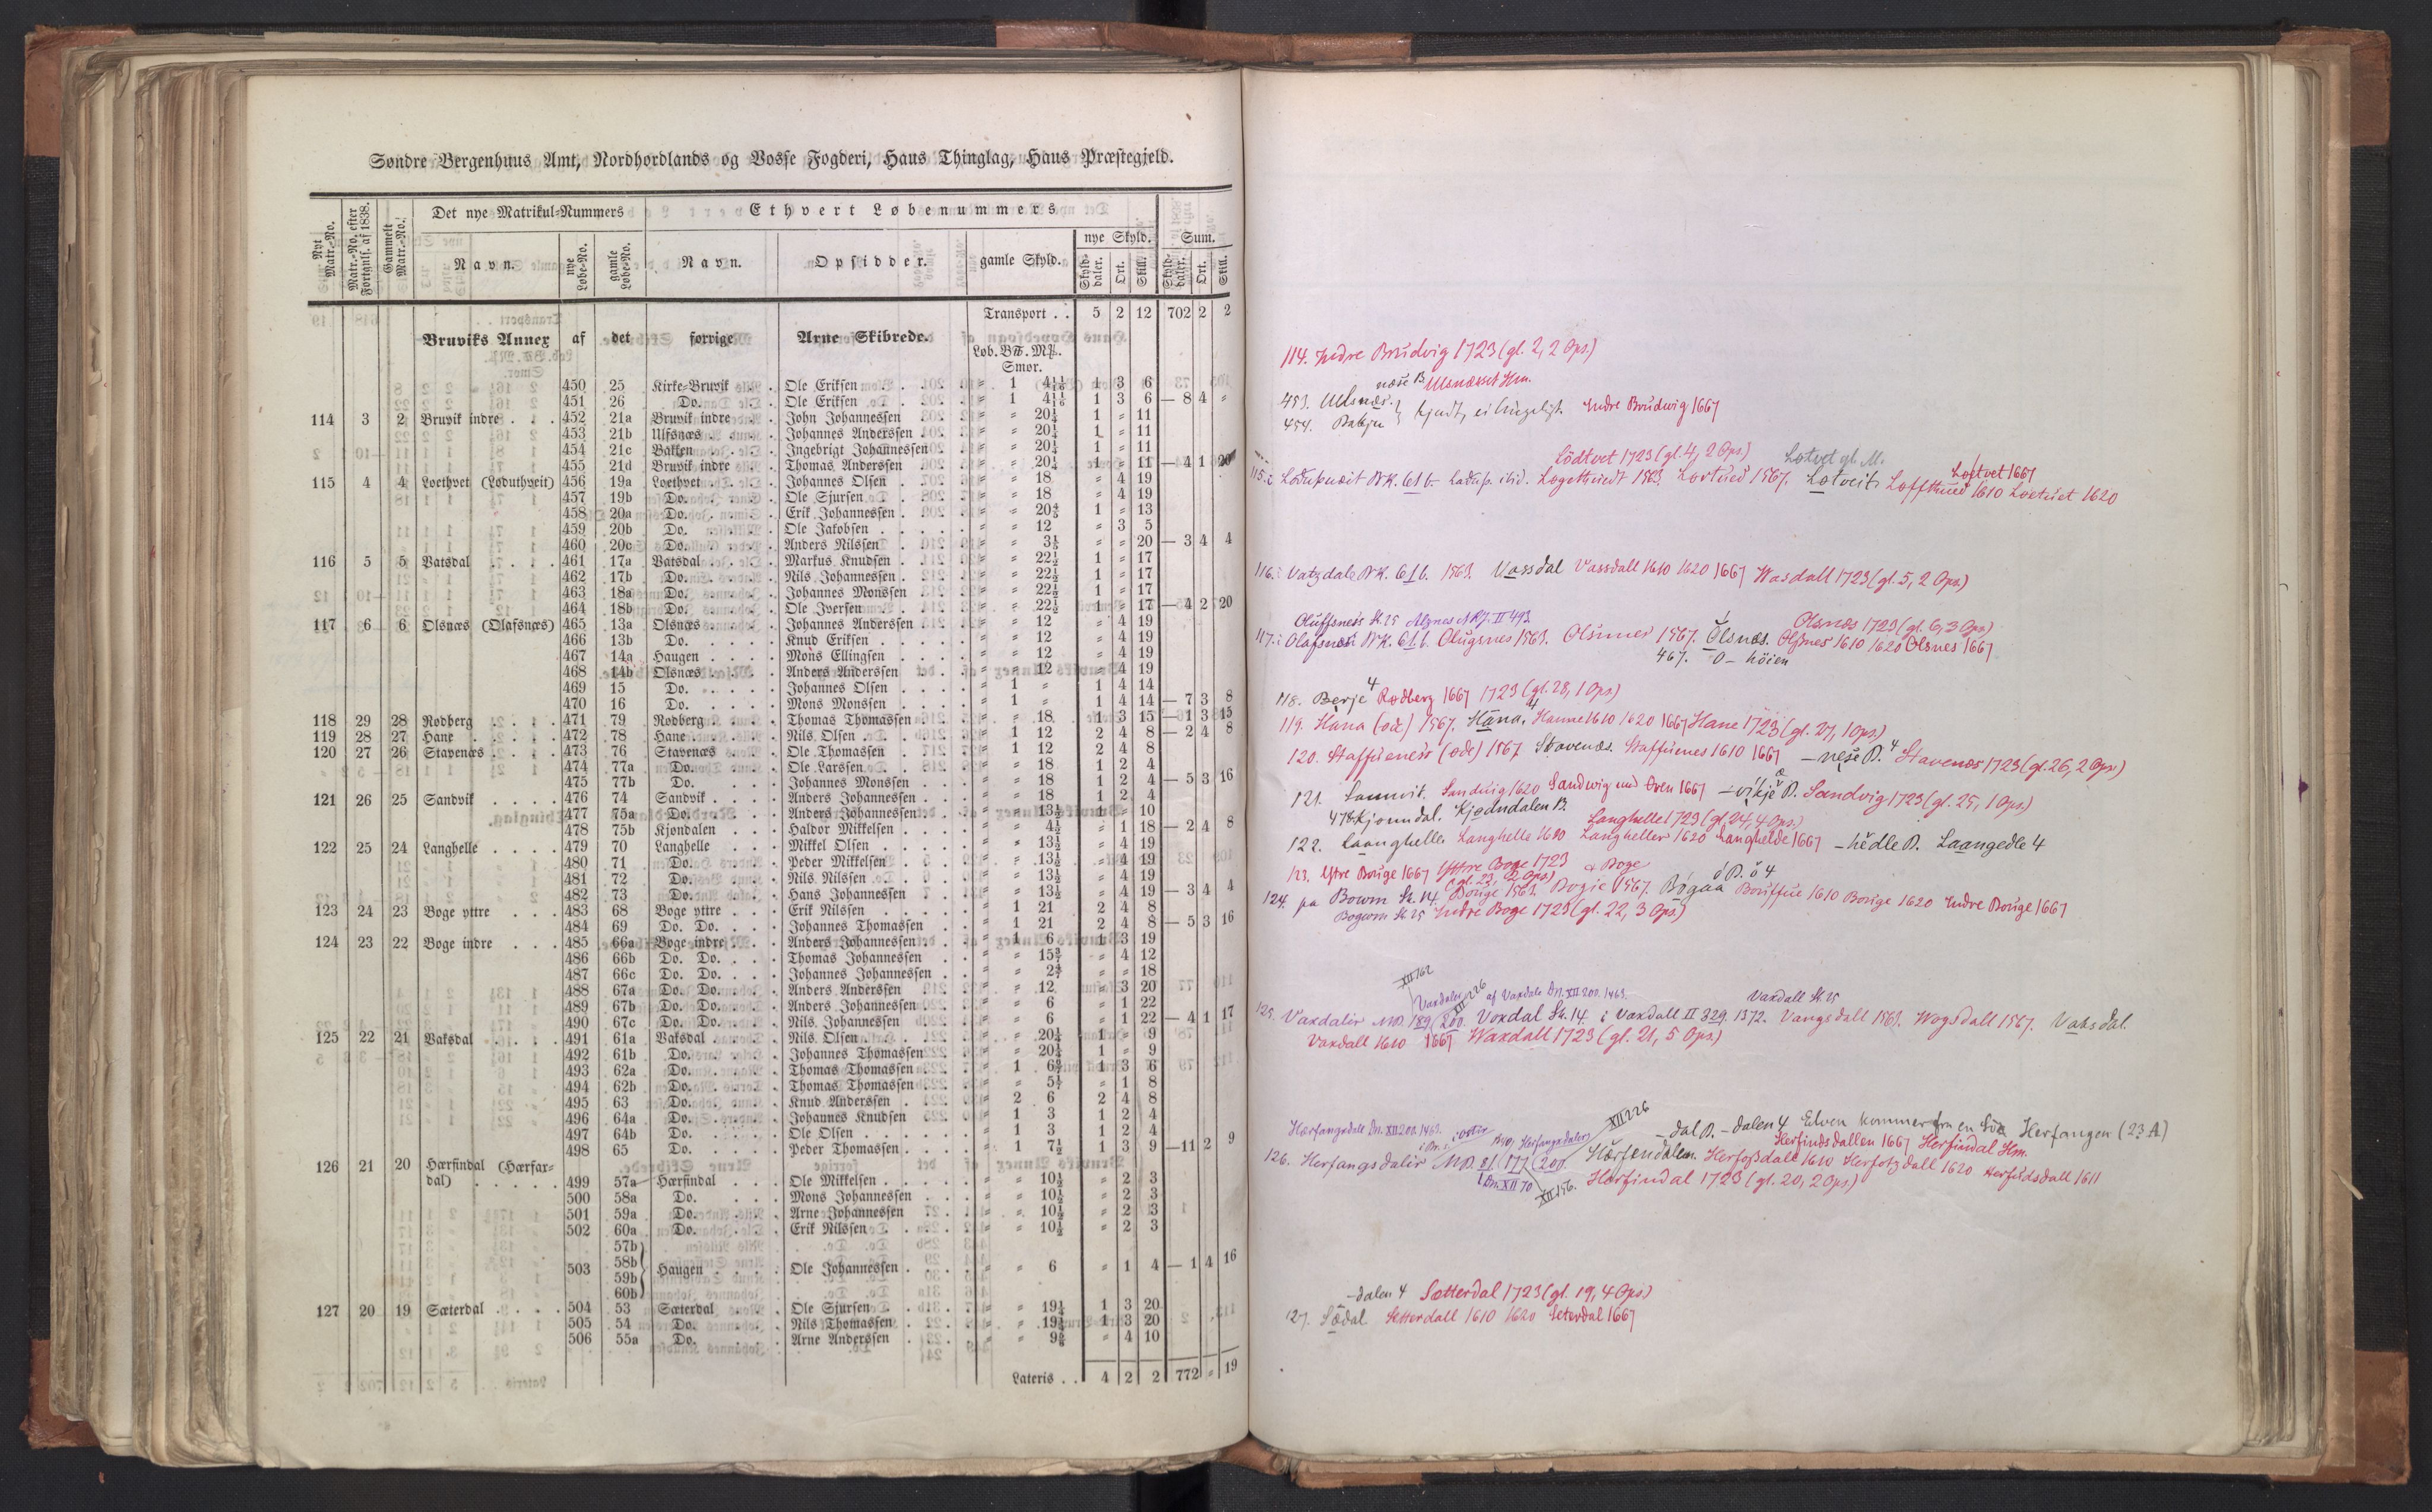 Søndre Bergenhuus Amt, Nordhordlands og Vosse Fogderi, Haus Thinglag, Haus Præstegjeld.
Nyt Matr.-No. Matr.-No. efter Fortgnls. af 1838. Gammelt Matr.-No. Det nye Matrikul-Nummers Ethvert Løbenummers
Navn. nye Løbe-No. gamle Løbe-No. Navn. Opsidder. gamle Skyld. nye Skyld. Sum.
Skylddaler. Ort. Skill. Skylddaler. Ort. Skill.
Transport . . 5 2 12 702 2 2
Bruviks Annex af det forrige Arne Skibrede.
Løb. B℔. M℔.
Smør.
450 25 Kirke-Bruvik . . Ole Eriksen . . . . " 1 4 1/16 1 3 6
451 26 Do. . . Ole Eriksen . . . . " 1 4 1/16 1 3 6 — 8 4 "
114 3 2 Bruvik indre . . . 452 21a Bruvik indre . . John Johannessen . . " " 20¼ 1 " 11
453 21b Ulfsnæs . . . Johannes Anderssen . . " " 20¼ 1 " 11
454 21c Bakken . . . Ingebrigt Johannessen . " " 20¼ 1 " 11
455 21d Bruvik indre . . Thomas Anderssen . . " " 20¼ 1 " 11 — 4 1 20
115 4 4 Loethvet (Loduthveit) 456 19a Loethvet . . . Johannes Olsen . . . " " 18 " 4 19
457 19b Do. . . . Ole Sjursen . . . . " " 18 " 4 19
458 20a Do. . . . Erik Johannessen . . " " 20⅘ 1 " 13
459 20b Do. . . . Ole Jakobsen . . . . " " 12 " 3 5
460 20c Do. . . . Anders Nilssen . . . " " 3⅕ " " 20 — 3 4 4
116 5 5 Vatsdal . . . . 461 17a Vatsdal . . . Markus Knudsen . . . " " 22½ 1 " 17
462 17b Do. . . . Nils Johannessen . . " " 22½ 1 " 17
463 18a Do. . . . Johannes Monssen . . " " 22½ 1 " 17
464 18b Do. . . . Ole Iversen . . . . " " 22½ 1 " 17 — 4 2 20
117 6 6 Olsnæs (Olafsnæs) 465 13a Olsnæs . . . Johannes Anderssen . " " 12 " 4 19
466 13b Do. . . . Knud Eriksen . . . . " " 12 " 4 19
467 14a Haugen . . . Mons Ellingsen . . . " " 12 " 4 19
468 14b Olsnæs . . . Anders Anderssen . . " " 12 " 4 19
469 15 Do. . . . Johannes Olsen . . . " 1 " 1 4 14
470 16 Do. . . . Mons Monssen . . . . " 1 " 1 4 14 — 7 3 8
118 29 28 Rødberg . . . . 471 79 Rødberg . . . Thomas Thomassen . . " " 18 1 3 15 — 1 3 15
119 28 27 Hane . . . . 472 78 Hane . . . . Nils Olsen . . . . " 1 12 2 4 8 — 2 4 8
120 27 26 Stavenæs . . . . 473 76 Stavenæs . . . Ole Thomassen . . . " 1 12 2 4 8
474 77a Do. . . . Ole Larssen . . . . " " 18 1 2 4
475 77b Do. . . . Johannes Monssen . . " " 18 1 2 4 — 5 3 16
121 26 25 Sandvik . . . . 476 74 Sandvik . . . Anders Johannessen . . " " 18 1 2 4
477 75a Do. . . . Anders Johannessen . . " " 13½ 1 " 10
478 75b Kjøndalen . . . Haldor Mikkelsen . . . " " 4½ " 1 18 — 2 4 8
122 25 24 Langhelle . . . . 479 70 Langhelle . . . Mikkel Olsen . . . . " " 13½ " 4 19
480 71 Do. . . . Peder Mikkelsen . . . " " 13½ " 4 19
481 72 Do. . . . Nils Nilssen . . . . " " 13½ " 4 19
482 73 Do. . . . Hans Johannessen . . " " 13½ " 4 19 — 3 4 4
123 24 23 Boge yttre . . . 483 68 Boge yttre . . . Erik Nilssen . . . . " 1 21 2 4 8
484 69 Do. Do. . . . Johannes Thomassen . " 1 21 2 4 8 — 5 3 16
124 23 22 Boge indre . . . 485 66a Boge indre . . . Anders Johannessen . . " 1 6 1 3 19
486 66b Do. Do. . . . Thomas Johannessen . " " 15 3/7 " 4 12
487 66c Do. Do. . . . Johannes Johannessen . " " 2 4/7 " " 18
488 67a Do. Do. . . . Anders Anderssen . . " " 12 " 3 20
489 67b Do. Do. . . . Anders Johannessen . . " " 6 " 1 22
490 67c Do. Do. . . . Nils Johannessen . . " " 6 " 1 22 — 4 1 17
125 22 21 Vaksdal . . . . 491 61a Vaksdal . . . Nils Olsen . . . . " " 20¼ 1 " 9
492 61b Do. . . . Johannes Thomassen . . " " 20¼ 1 " 9
493 62a Do. . . . Thomas Thomassen . . " 1 1 3 6
494 62b Do. . . . Thomas Thomassen . . " " " 1 8
495 63 Do. . . . Knud Anderssen . . . " 2 6 2 4 8
496 64a Do. . . . Johannes Knudsen . . " 1 3 1 2 4
497 64b Do. . . . Ole Olsen . . . . . " 1 3 1 2 4
498 65 Do. . . . Peder Thomassen . . . " 1 7½ 1 3 9 — 11 2 9
126 21 20 Hærfindal (Hærfar-
dal) . . . . . 499 57a Hærfindal . . . Ole Mikkelsen . . . . " " 10½ " 2 3
500 58a Do. . . . Mons Johannessen . . " " 10½ " 2 3
501 59a Do. . . . Arne Johannessen . . " " 10½ " 2 3
502 60a Do. . . . Erik Nilssen . . . . " " 10½ " 2 3
57b
58b
503 Haugen . . . Ole Johannessen . . . " " 6 " 1 4 — 1 4 16
59b
60b
127 20 19 Sæterdal . . . . 504 53 Sæterdal . . . Ole Sjursen . . . . " " 19¼ 1 3 20
505 54 Do. . . . Nils Thomassen . . . " " 19¼ 1 3 20
506 55a Do. . . . Arne Anderssen . . . " " " 4 10
Lateris . . 4 2 2 772 " 19
114. Indre Brudvig 1723 (gl. 2, 2 Ops.)
næse B. Ulsnæset Hm.
453. Ulsnæs.
454. Bakju } kjendt, ei brugeligt. Indre Brudwig 1667
Lödtvet 1723 (gl. 4, 2 Ops.) Lotvet gl. M.
Loftvet 1667
115. i Loduþueit BK. 61 b. ibid. Logethuedt 1563. Lortued 1567. Lotveit. Loffthued 1610 Löetuet 1620
116. i Vatzdale BK. 61 b. 1563. Vassdal Vassdall 1610 1620 1667 Wasdall 1723 (gl. 5, 2 Ops.)
Oluffsness St. 25 Alznes NRJ. II 493 Olsnæs 1723 (gl. 6, 3 Ops.)
117. i Olafsnesi BK. 61 b. Olugsnes 1563. Olsnnes 1567. Olsnæs. Olsnes 1610 1620 Olsnes 1667
467. O – höien
118. Berje 4 Rødberg 1667 1723 (gl. 28, 1 Ops.)
119. Hana (øde) 1567. Hāna. 4 Hanne 1610 1620 1667 Hane 1723 (gl. 27, 1 Ops.)
120. Staffueness (øde) 1567 Stavenæs. Staffuenes 1610 1667 – nese P. 4 Stavenæs 1723 (gl. 26, 2 Ops.)
121. Sannvik. Sandwig 1620 Sandwig med Oven 1667 – vikje P. Sandvig 1723 (gl. 25, 1 Ops.)
478 Kjonndal. Kjødndalen B.
Langhelle 1723 (gl. 24, 4 Ops.)
122. Laanghelle. Langhelle 1610 Langheller 1620 Langhelde 1667 – hedle P. Laangedle 4
123. Ystre Bouge 1667 Yttre Boge 1723 (gl. 23, 2 Ops.) Boge
124. pa Bowm St. 14 Bouge 1563. Bogie 1567. Bogaa Bouffue 1610 Bouge 1620 Indre Bouge 1667
Bogwm St. 25 Indre Boge 1723 (gl. 22, 3 Ops.)
XII 162
Vaxdaler XII 226 af Vaxdale Dn. XII 200. 1463. Vaxdall St. 25
125. Vaxdalir MD. 189 (200. Voxdal St. 14. i Vaxdall II 329 1372. Vangsdall 1563. Wogsdall 1567. Vaksdal.
Vaxdall 1610 1667 Waxdall 1723 (gl. 21, 5 Ops.)
XII 226
Herfangsdale Dn. XII 200. 1463. – dal P. – dalen 4 Elven kommer fra en Sø Herfangen (23 A)
Herfindsdallen 1667 Herfindal Hm.
126. Herfangsdalir MD. 81 (177 (200. Hærfendalen. Herfossdall 1610 Herfotzdall 1620 Herfudsdall 1611
Dn. XII 70 XII 156. Hærfindal 1723 (gl. 20, 2 Ops.)
– dalen 4 Sætterdal 1723 (gl. 19, 4 Ops.)
127. Sǣdal Setterdall 1610 1620 Seterdal 1667